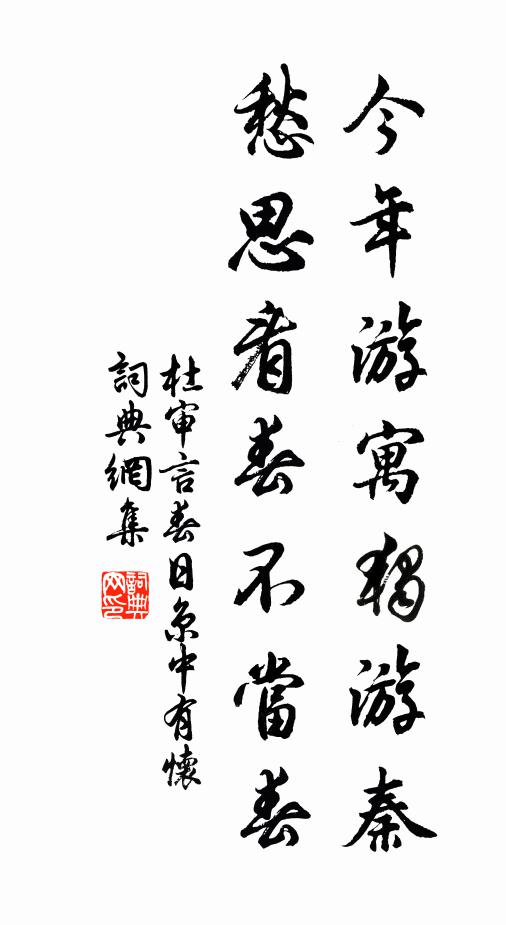 今年游寓獨游秦
愁思看春不當春
杜審言春日京中有懷
詞典網集
詞典網印